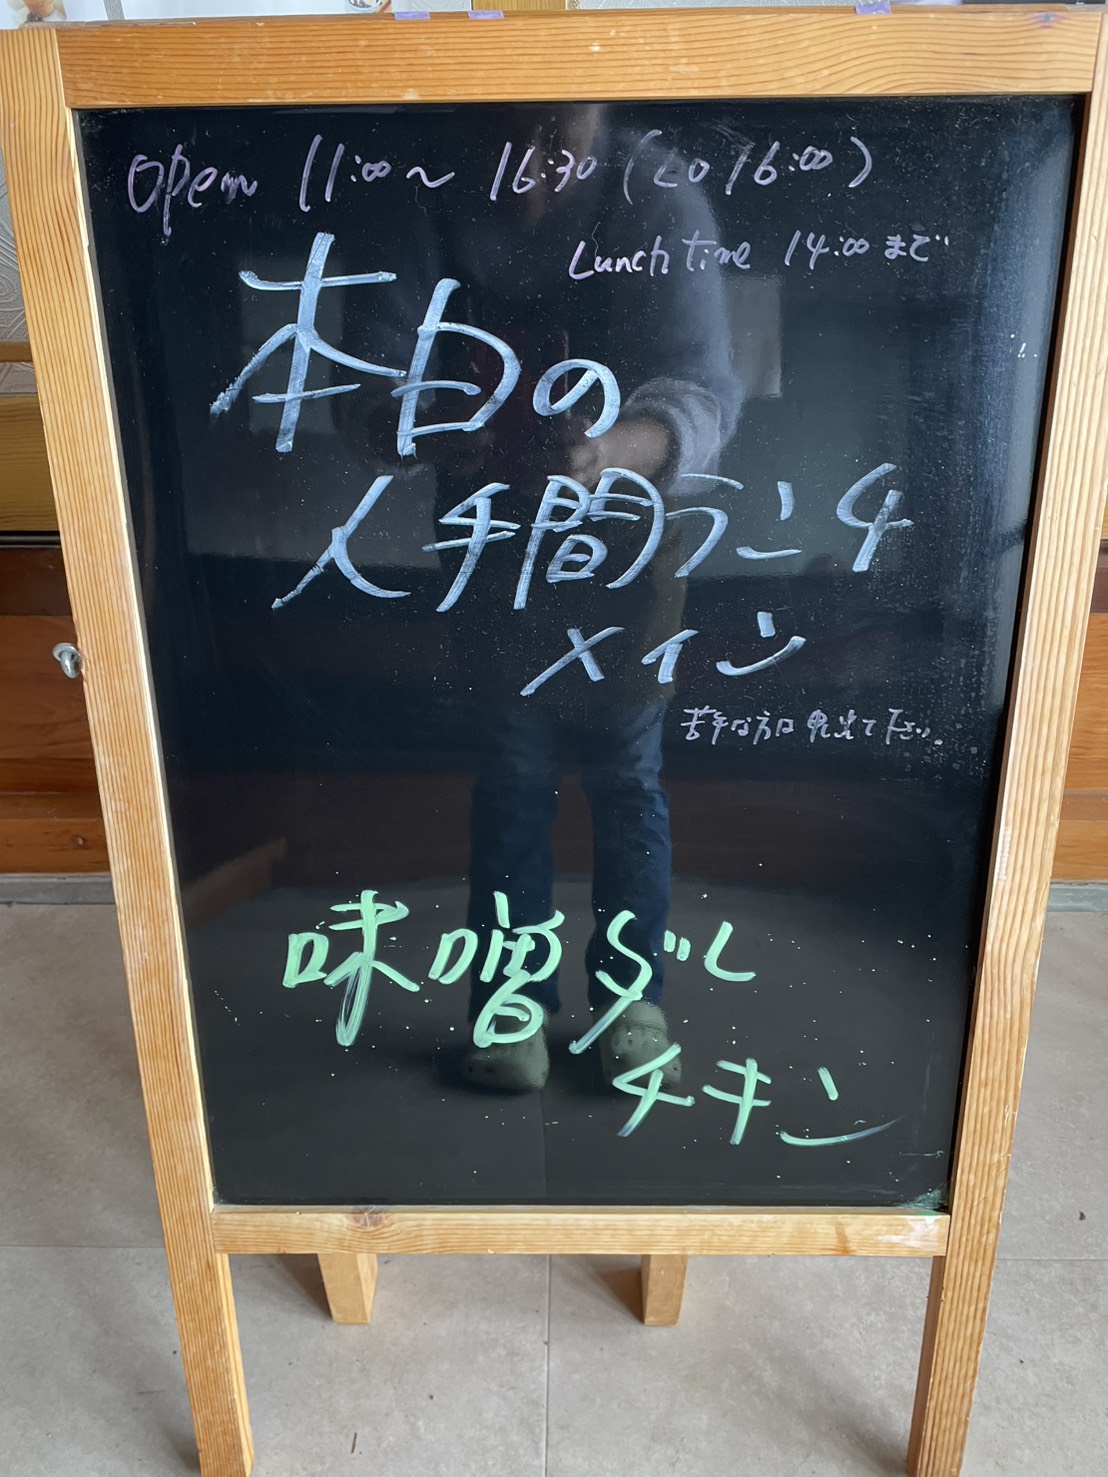 Open 11:00～16:30 (LO 16:00)
Lunch time 14:00まで
本日の
人手間ランチ
メイン
苦手な方は申し出て下さい。
味噌ダレ
チキン